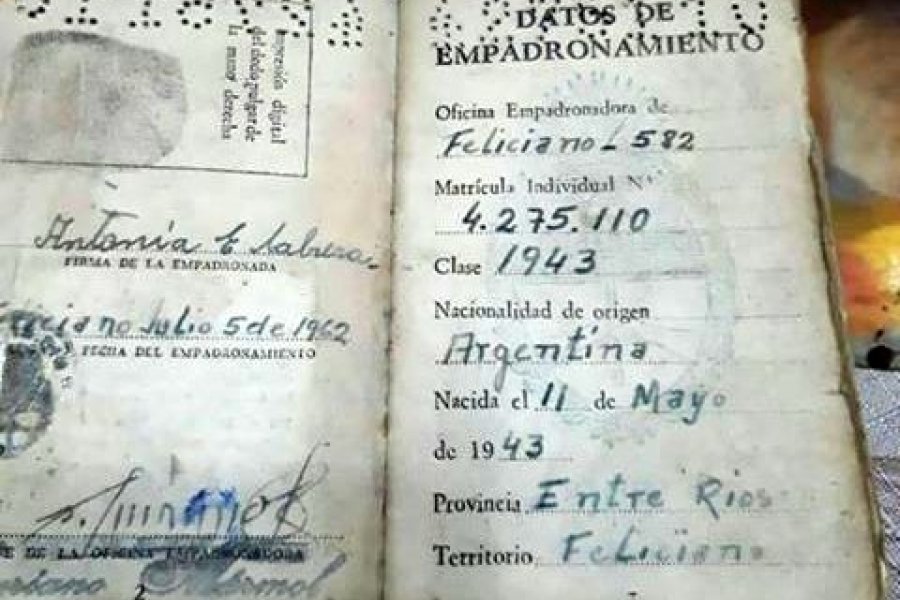 Impresión digital
del dedo pulgar de
la mano derecha
Antonia E
FIRMA DE LA EMPADRONADA
Feliciano Julio 5 de 1962
FECHA DEL EMPADRONAMIENTO
DE LA OFICINA EMPADRONADORA
2
DATOS DE
EMPADRONAMIENTO
Oficina Empadronadora de
Feliciano L 582
Matrícula Individual Nº
4.275.110
Clase 1943
Nacionalidad de origen
Argentina
Nacida el 11 de Mayo
de 1943
Provincia Entre Rios
Territorio Feliciano